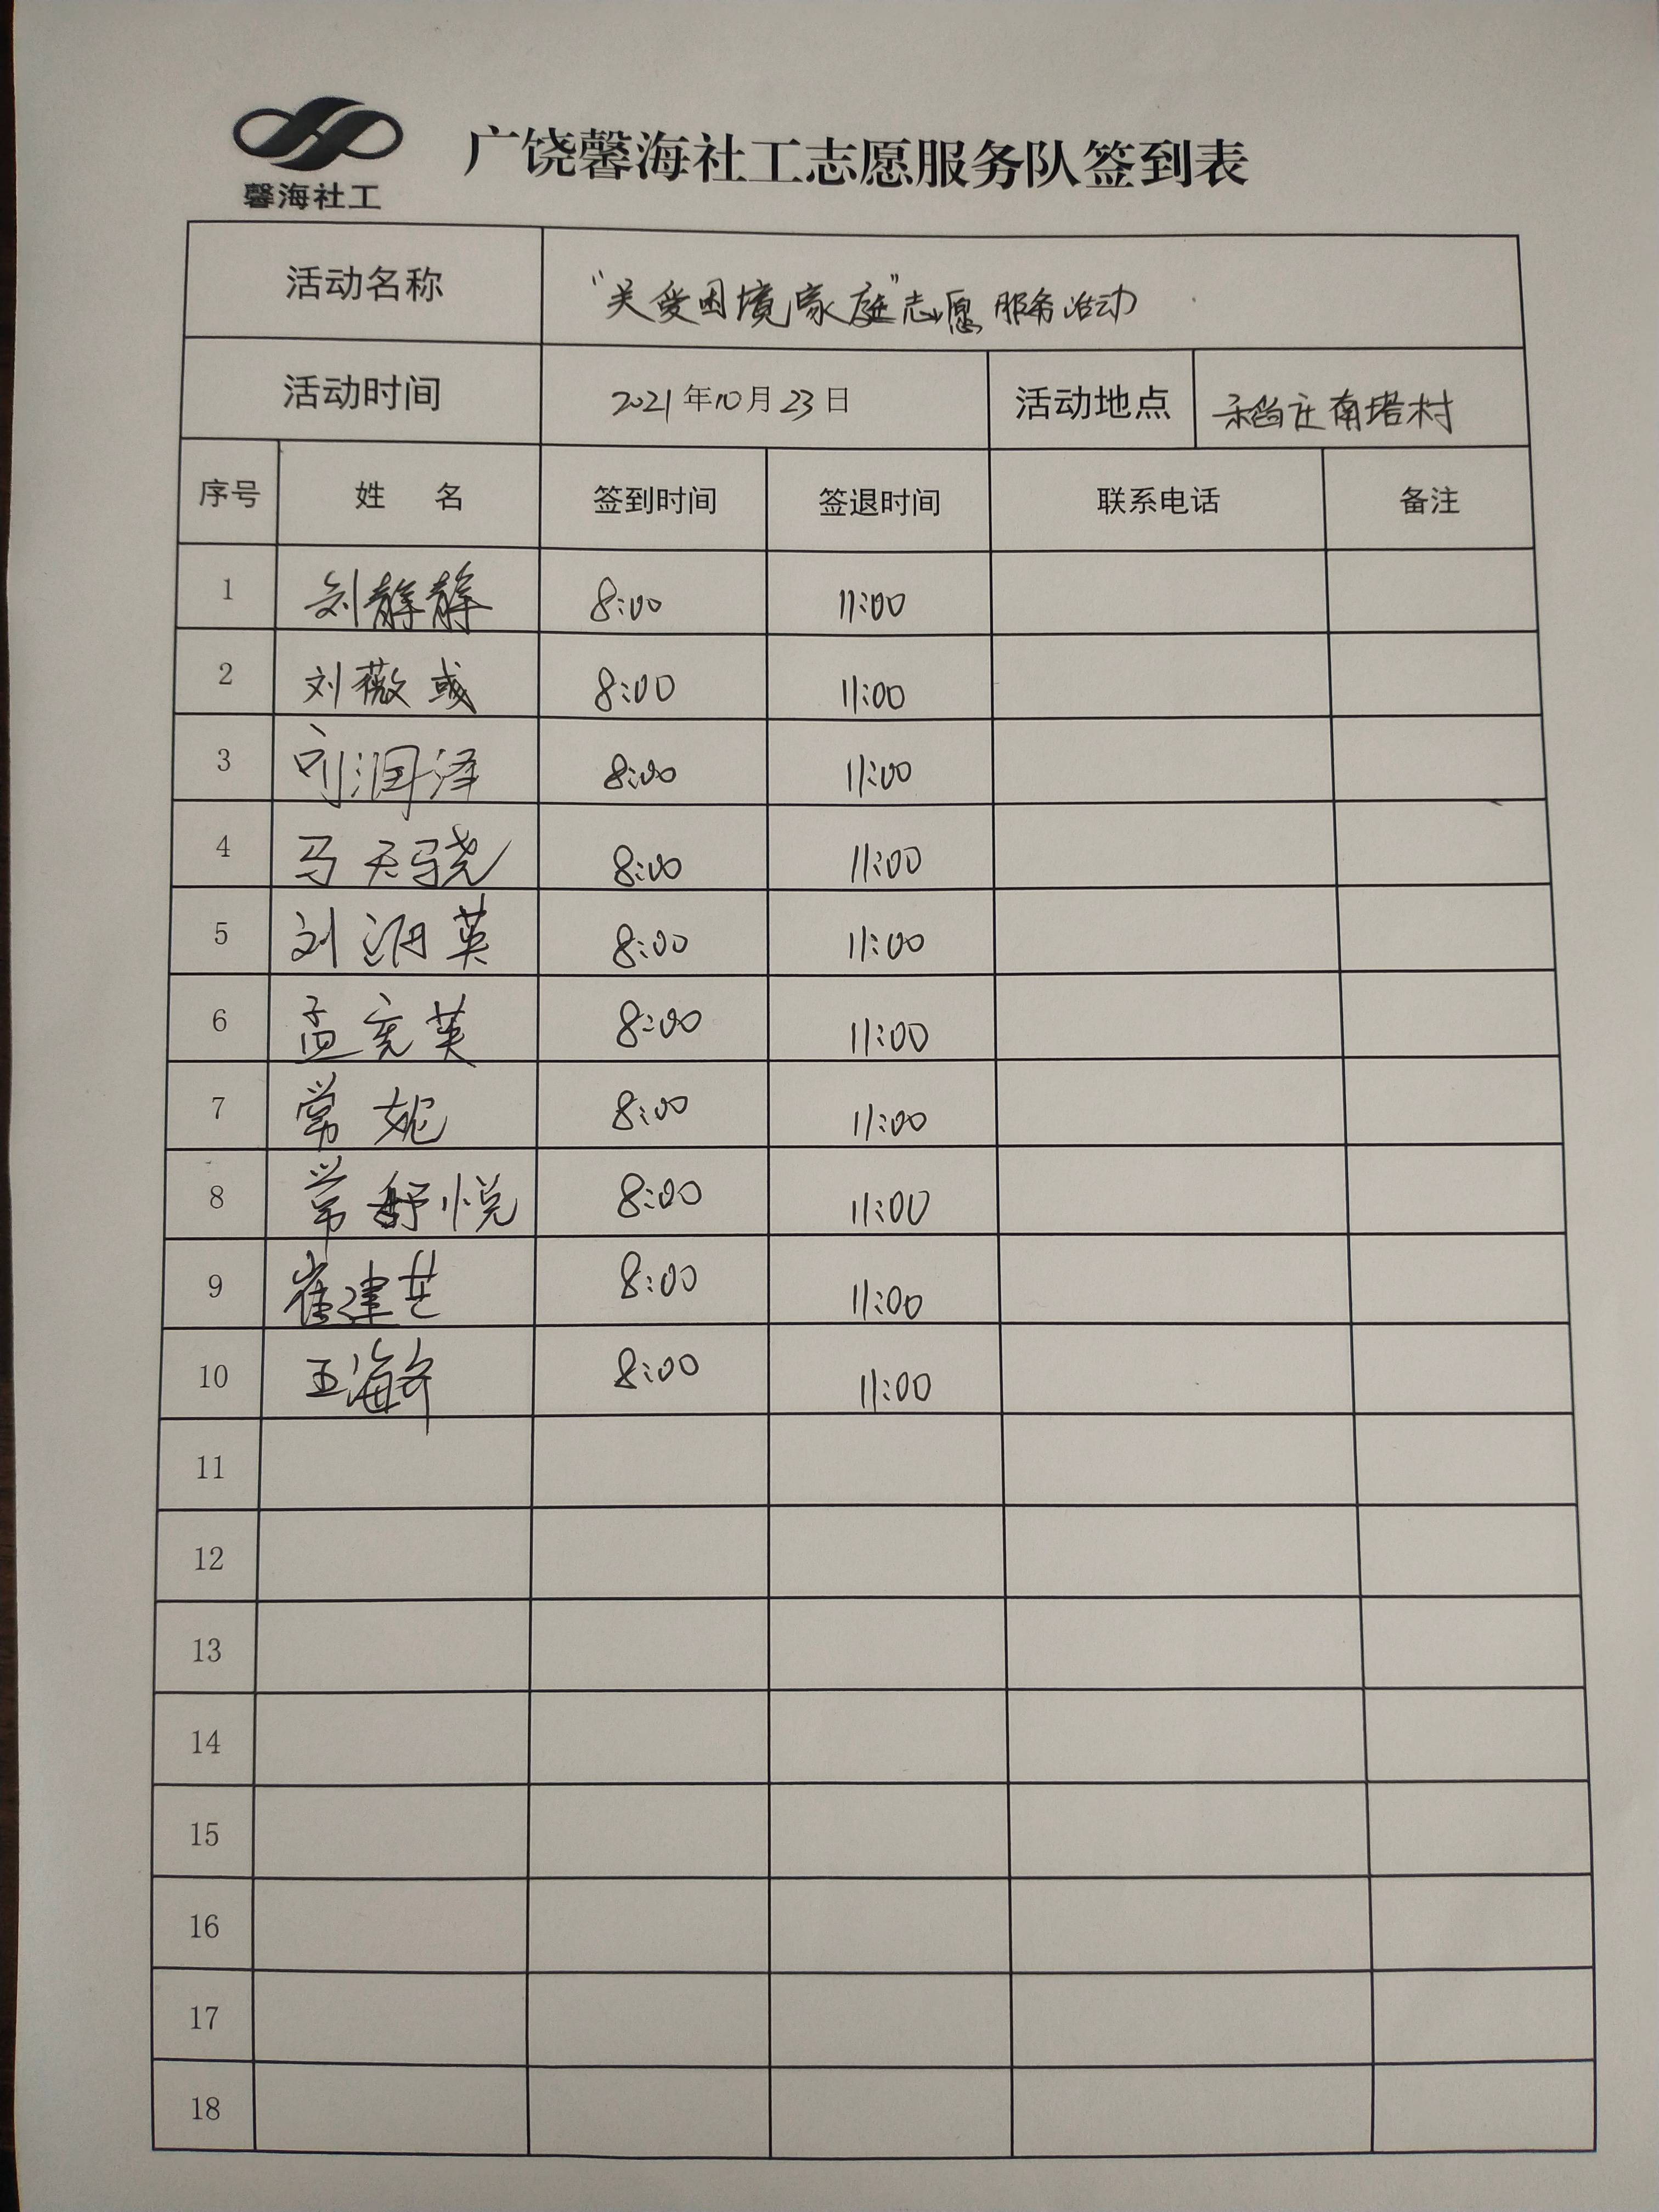 馨海社工
广饶馨海社工志愿服务队签到表
活动名称 "关爱困境家庭"志愿服务活动
活动时间 2021年10月23日 活动地点 稻庄南塔村
序号 姓 名 签到时间 签退时间 联系电话 备注
1 刘静静 8:00 11:00
2 刘薇彧 8:00 11:00
3 刘润泽 8:00 11:00
4 马天骁 8:00 11:00
5 刘 英 8:00 11:00
6 孟宪英 8:00 11:00
7 常妮 8:00 11:00
8 常舒悦 8:00 11:00
9 崔建芒 8:00 11:00
10 王海 8:00 11:00
11
12
13
14
15
16
17
18